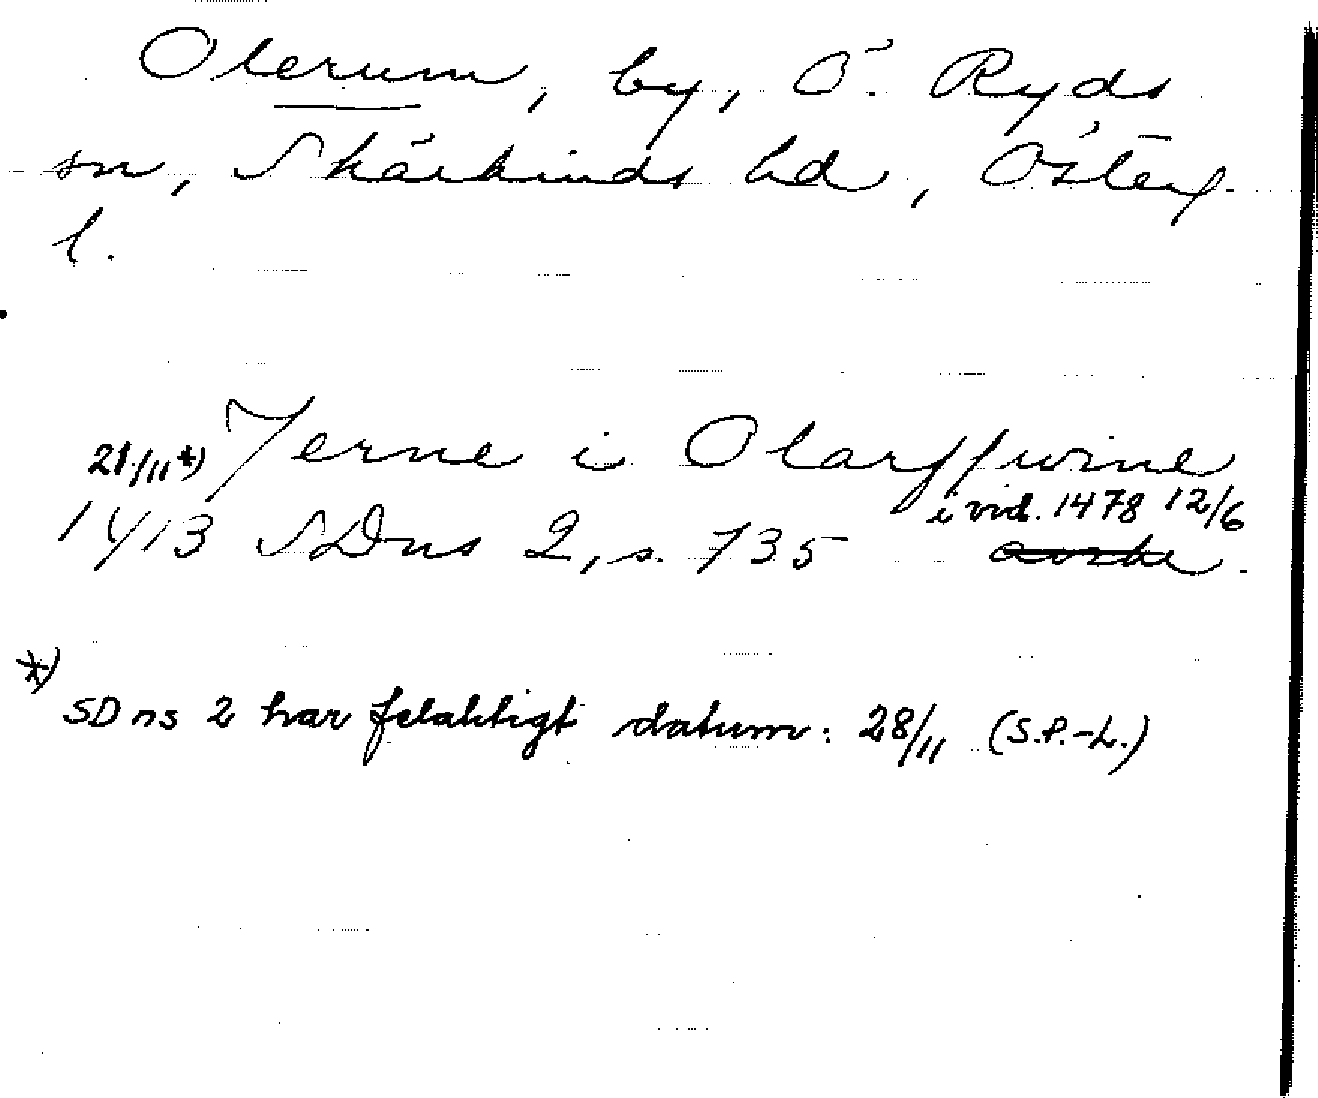 Olerum, by, Ö. Ryds
sn, Skärkinds hd, Österg
l.
21/11 *) Jerne i Olarffwine
i vid. 1478 12/6
1413 SDns 2, s. 735 avskr.
*) SDns 2 har felaktigt datum: 28/11 (S.P.-L.)